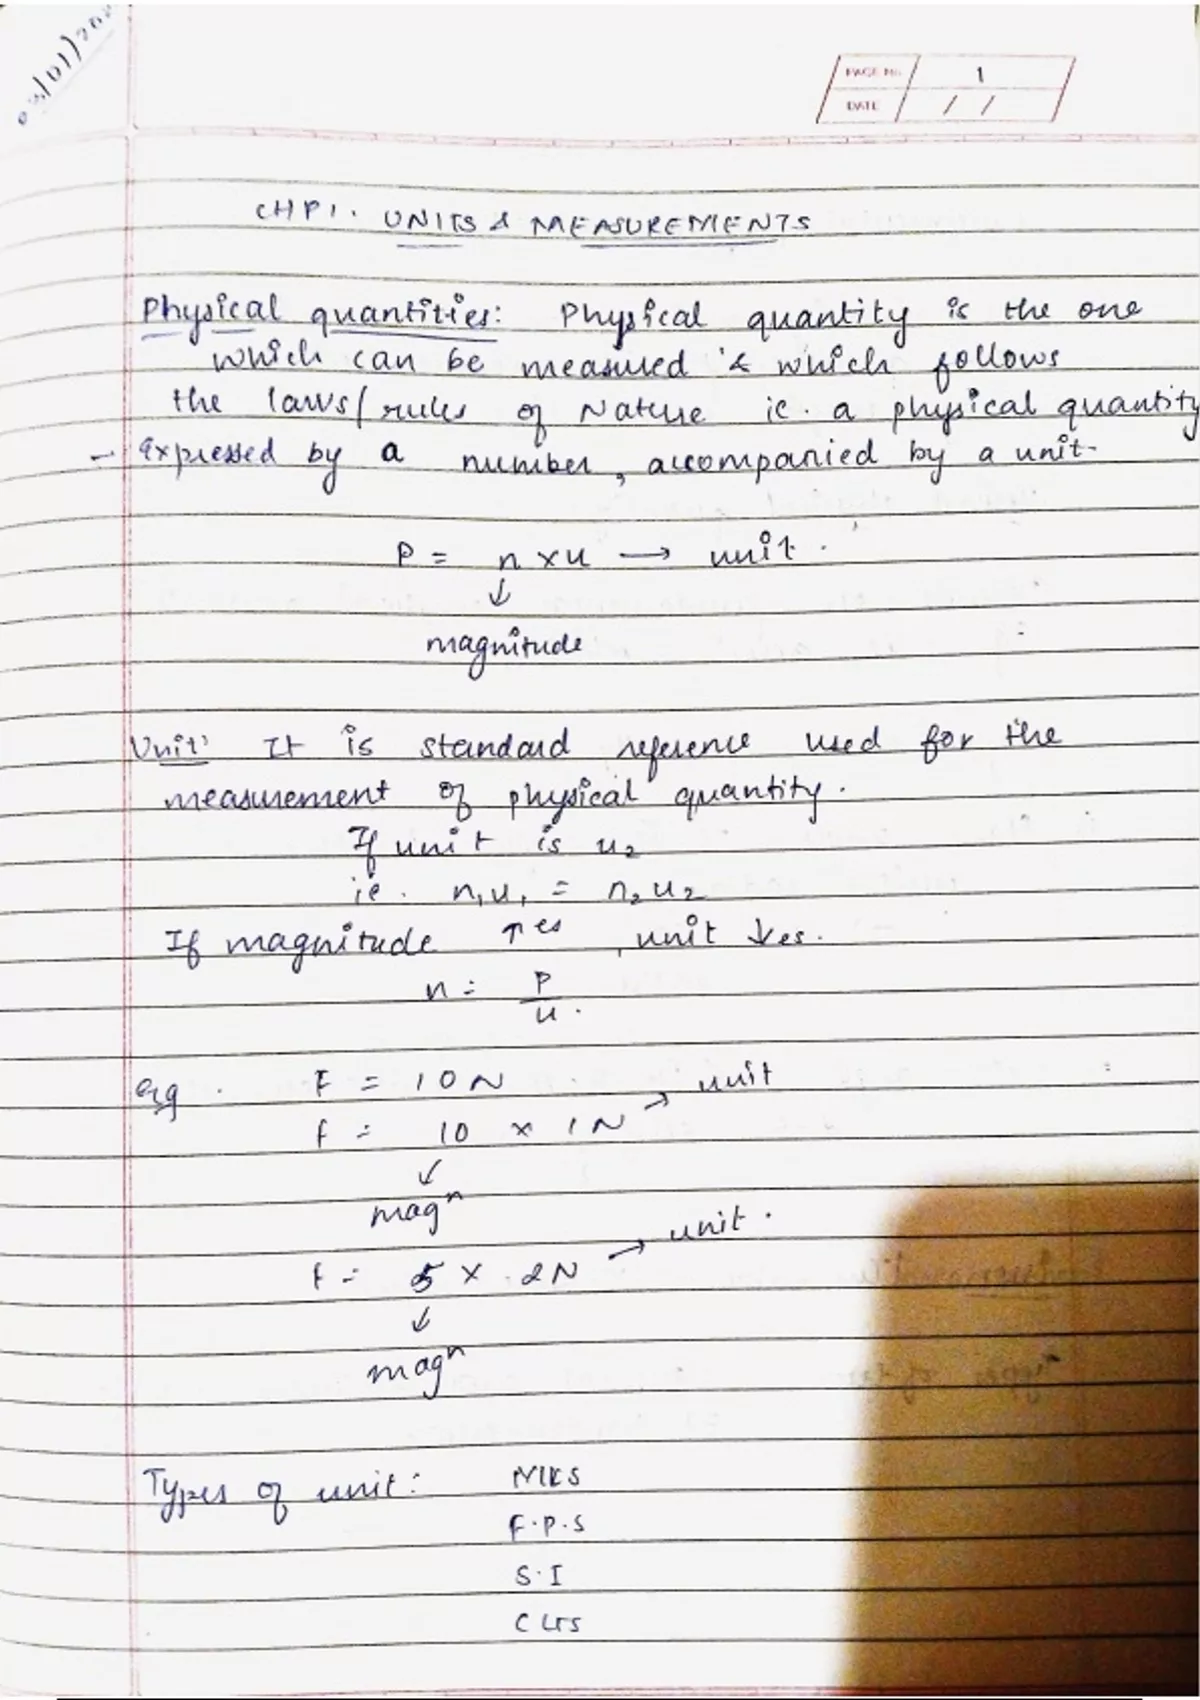 PAGE No. 1
DATE / /
CHP1. UNITS & MEASUREMENTS
Physical quantities: Physical quantity is the one
which can be measured & which follows
the laws/rules of Nature ie. a physical quantity
- expressed by a number, accompanied by a unit.
P = n × u → unit.
↓
magnitude
Unit: It is standard reference used for the
measurement of physical quantity.
If unit is u₂
ie. n₁u₁ = n₂u₂
If magnitude ↑es, unit ↓es.
n = P/u.
eg. F = 10N
f = 10 × 1N → unit
↓
magⁿ
f = 5 × 2N → unit.
↓
magⁿ
Types of unit: MKS
F.P.S
S.I
CGS